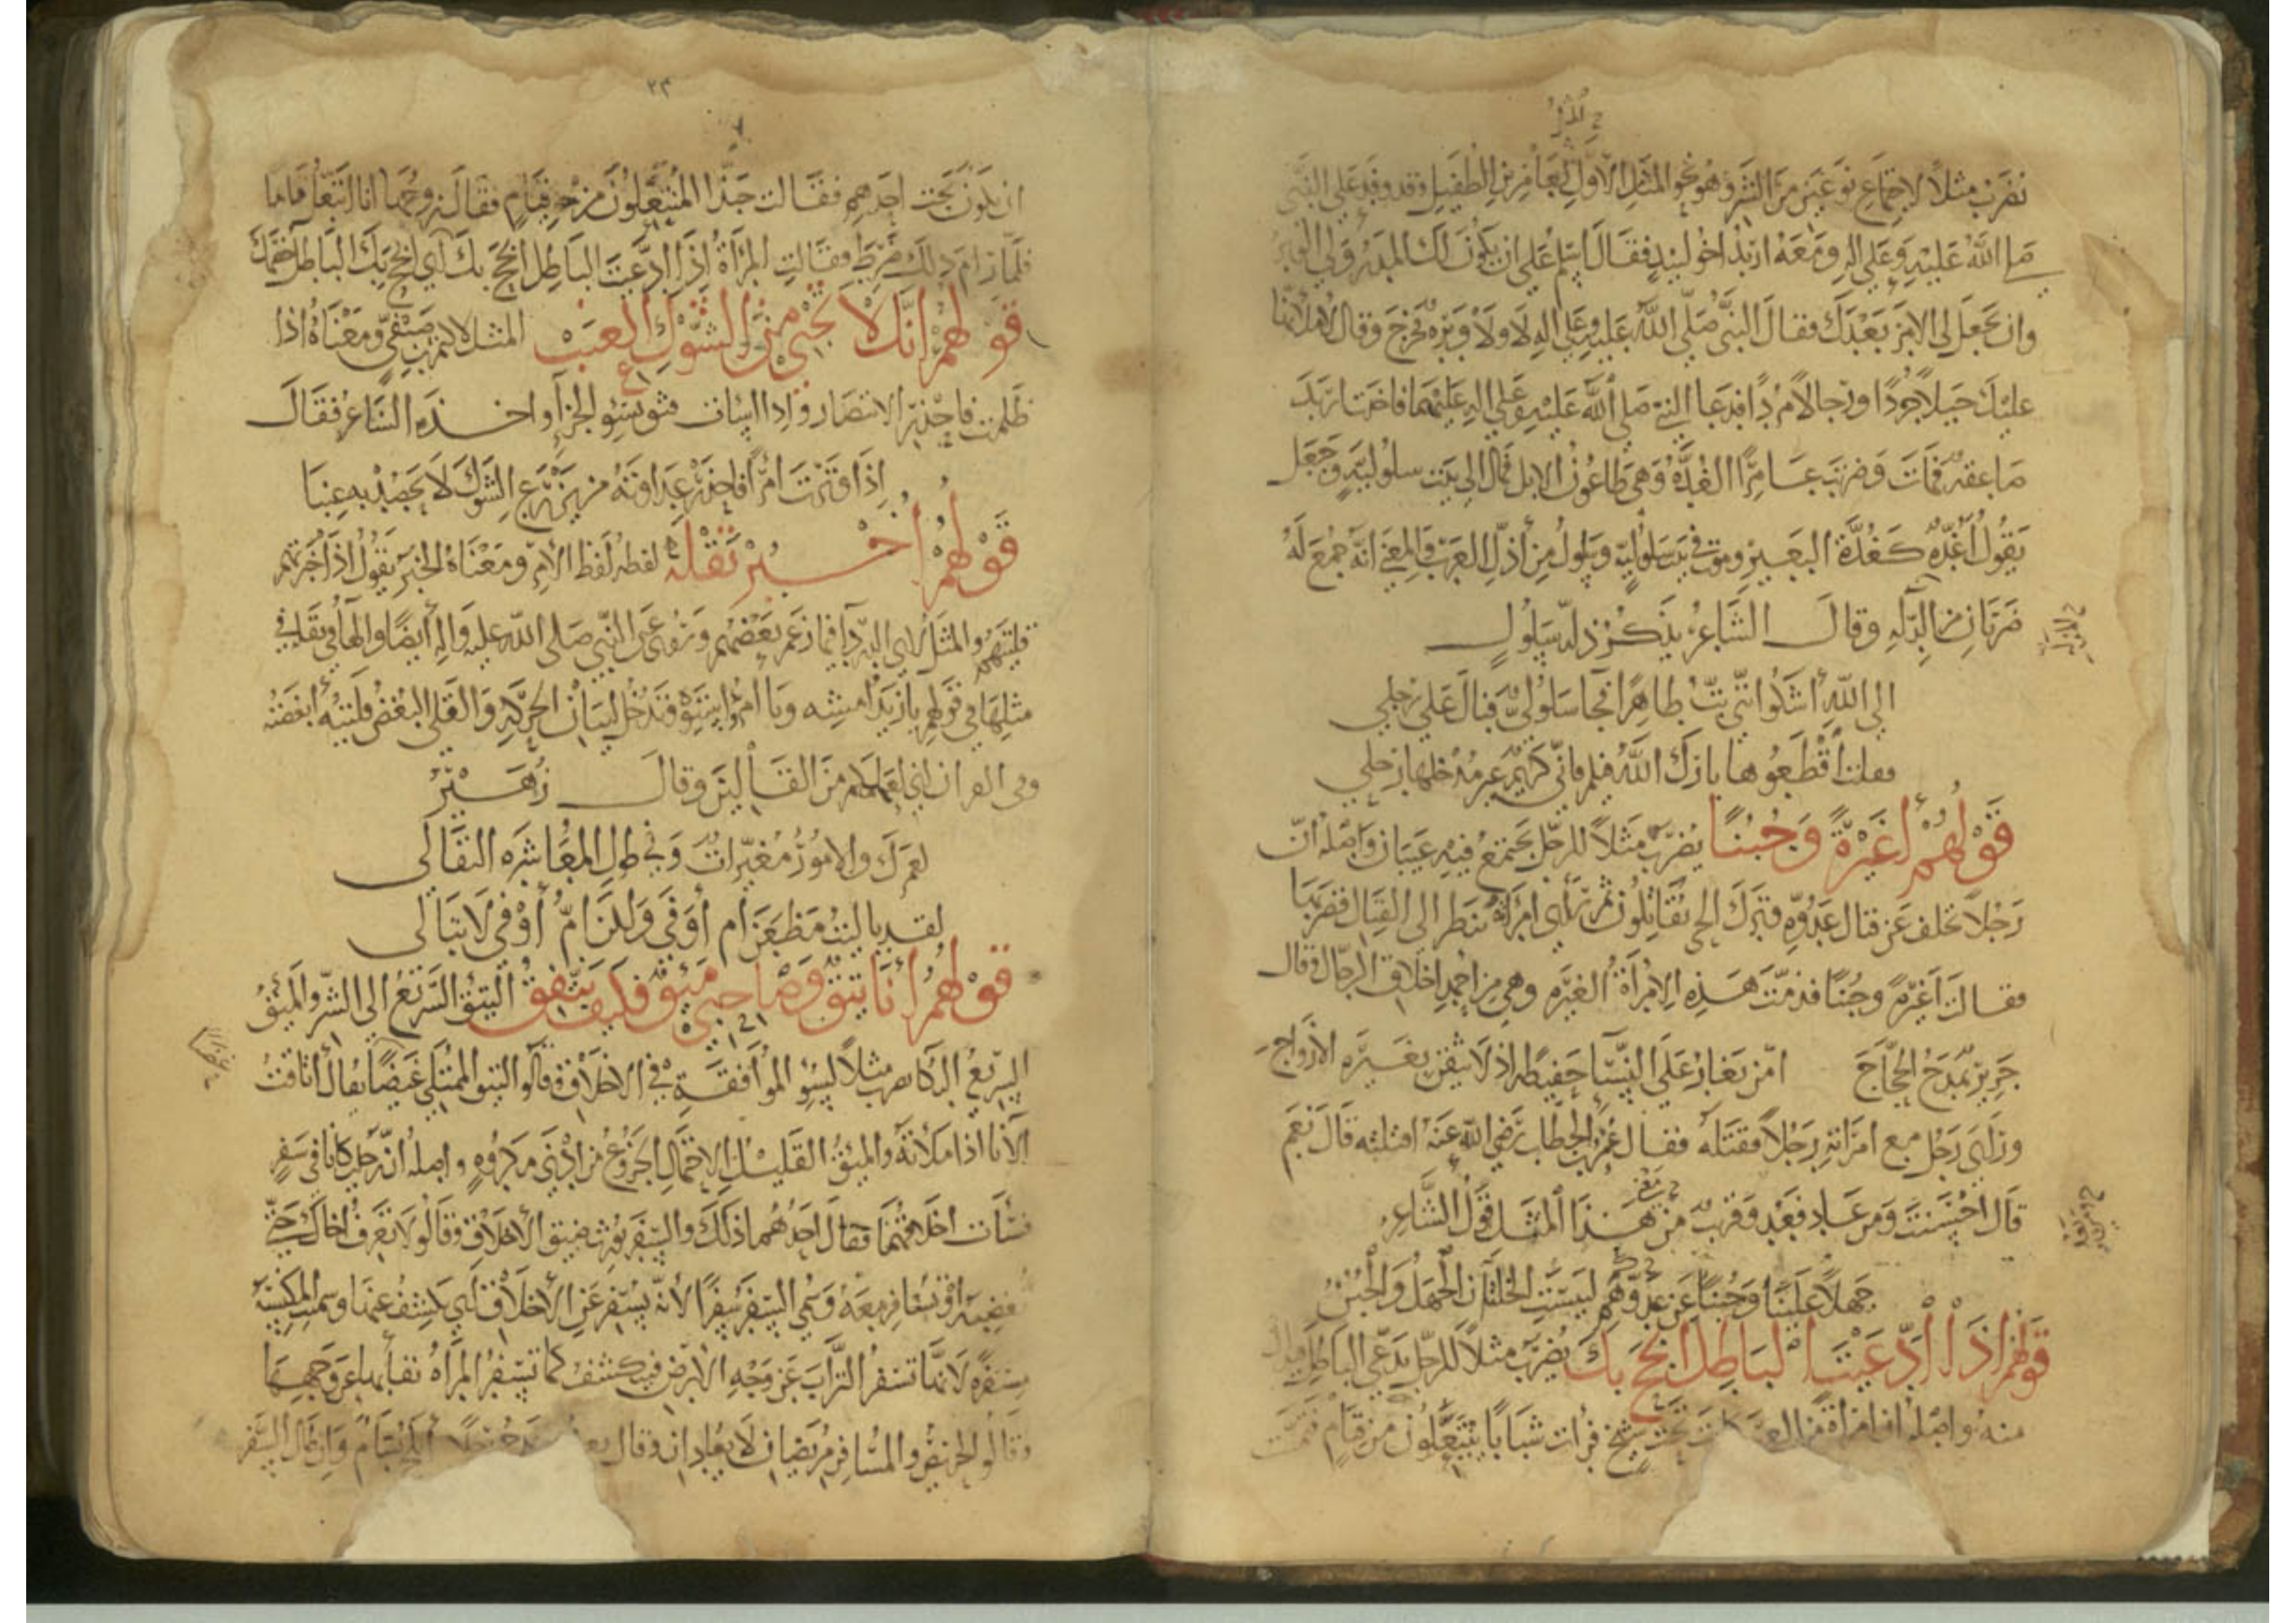 يضرب مثلاً لاجتماع نوعين من الشر وهو نحو المثل الأول لعامر بن الطفيل وقد وفد على النبي
صلى الله عليه وعلى اله ومعه اربد اخو لبيد فقال اسلم على ان يكون لك المدر ولي الوبر
وان تجعل لي الامر بعدك فقال النبي صلى الله عليه وعلى اله لا ولا وبره فخرج وقال لاملأنها
عليك خيلا جردًا ورجالا مردًا فدعا النبي صلى الله عليه وعلى اله عليهما فاخذت اربد
صاعقة فمات وضربت عامرًا الغدّة وهي طاعون الابل فمال الى بيت سلولية وجعل
يقول أغدّة كغدّة البعير وموت في بيت سلولية وسلول من أذل العرب والمعنى انه جمع له
ضربان من الذلة وقال الشاعر يذكر ذلة سلول
الى الله أشكوا انني بتّ طاهرًا فجا سلولي فبال على رجلي
فقلت اقطعوها بارك الله فيكم فاني كريم غير مدخلها رحلي
قولهم أغيرة وجبنا يضرب مثلاً للرجل يجتمع فيه عيبان واصله ان
رجلاً تخلف عن قتال عدوّه وترك الحي يقاتلون ثم رأى امرأته تنظر الى القتال فضربها
فقالت أغيرة وجبنًا فذمّت هذه الامرأة الغيرة وهي من احمد اخلاق الرجال وقال
جرير يمدح الحجّاج امّن يغار على النسا حفيظة اذ لا يثقن بغيرة الأزواج
ورأى رجل مع امرأته رجلاً فقتله فقال عمر بن الخطاب رضي الله عنه اقتلته قال نعم
قال احسنت ومن عاد فعد وقريب من هذا المثل قول الشاعر
جهلاً علينا وجبنًا عن عدوّهم لبيست الخلتان الجهل والجبن
قولهم اذا ادّعيت الباطل انجح بك يضرب مثلاً للرجل يدعي الباطل
منه واصله ان امرأة من العرب كانت تحت شيخ فرات شبابا يتنعلون من قيام فتمنت
٢٣
ان يكون تحت احدهم فقالت حبذا المنتعلون من قيام فقال زوجها انا انتعل قاما
فلما رام ذلك ضرط فقالت المرأة اذا ادّعيت الباطل انجح بك أي انجح بك الباطل خصمك
قولهم انك لا تجني من الشوك العنب المثل لاكثم بن صيفي ومعناه اذا
ظلمت فاحذر الانتصار واذا اسات فثق بسوء الجزآ واخذه الشاعر فقال
اذا وترت امرًأ فاحذر عداوته من يزرع الشوك لا يحصد به عنبا
قولهم أخبر تقله لفظه لفظ الأمر ومعناه الخبر يقول اذا خبرتهم
قليتهم والمثل لابي الدردآ فيما زعم بعضهم وروي عن النبي صلى الله عليه واله أيضًا والهآ في تقله
مثلها في قولهم يا زيد امشه ويا امرؤ استه فتدخل لبيان الحركة والقلى البغض قليته أبغضته
وفي القران اني لعملكم من القالين وقال زهير
لعمرك والامور مغيّرات وفي طول المعاشره التقالى
لقد باليت مظعن أم أوفى ولكن أمّ أوفى لا تبالى
قولهم أنا تئق وصاحبي مئق فكيف نتفق التئق السريع الى الشر والمئق
السريع البكا يضرب مثلاً لسؤ الموافقة في الاخلاق وقالوا التئق الممتلي غيضًا يقال أتاقت
الانا اذا ملأته والمئق القليل الاحتمال الجزوع من ادنى مكروه واصله انّ رجلين كانا في سفر
فسأت اخلاقهما فقال احدهما ذلك والسفر يورث ضيق الأخلاق وقالوا لا تعرف اخاك حتى
تغضبه او تسافر معه وسمي السفر سفرًا لأنه يسفر عن الأخلاق أي يكشف عنها وسميت المكنسة
مسفرة لانها تسفر التراب عن وجه الارض فينكشف كما تسفر المرأة نقابها عن وجهها
وقالوا الحزين والمسافر مريضان لا يعادان وقال